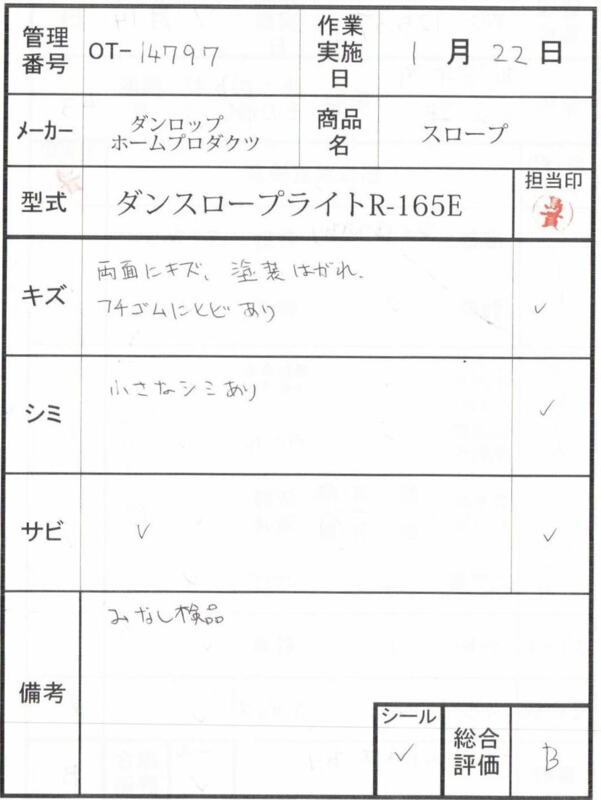 管理番号 OT-14797 作業実施日 1月22日
メーカー ダンロップ
ホームプロダクツ 商品名 スロープ
型式 ダンスロープライトR-165E 担当印
キズ 両面にキズ、塗装はがれ、
フチゴムにヒビあり ✓
シミ 小さなシミあり ✓
サビ ✓ ✓
備考 みなし検品
シール ✓ 総合評価 B